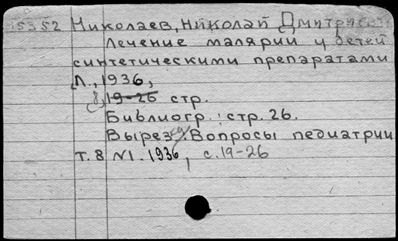 15352 Николаев, Николай Дмитриевич
Лечение малярии у детей
синтетическими препаратами
Л., 1936,
8, 19-26 стр.
Библиогр.: стр. 26.
Вырез. Вопросы педиатрии
т. 8 N1. 1936, с. 19-26